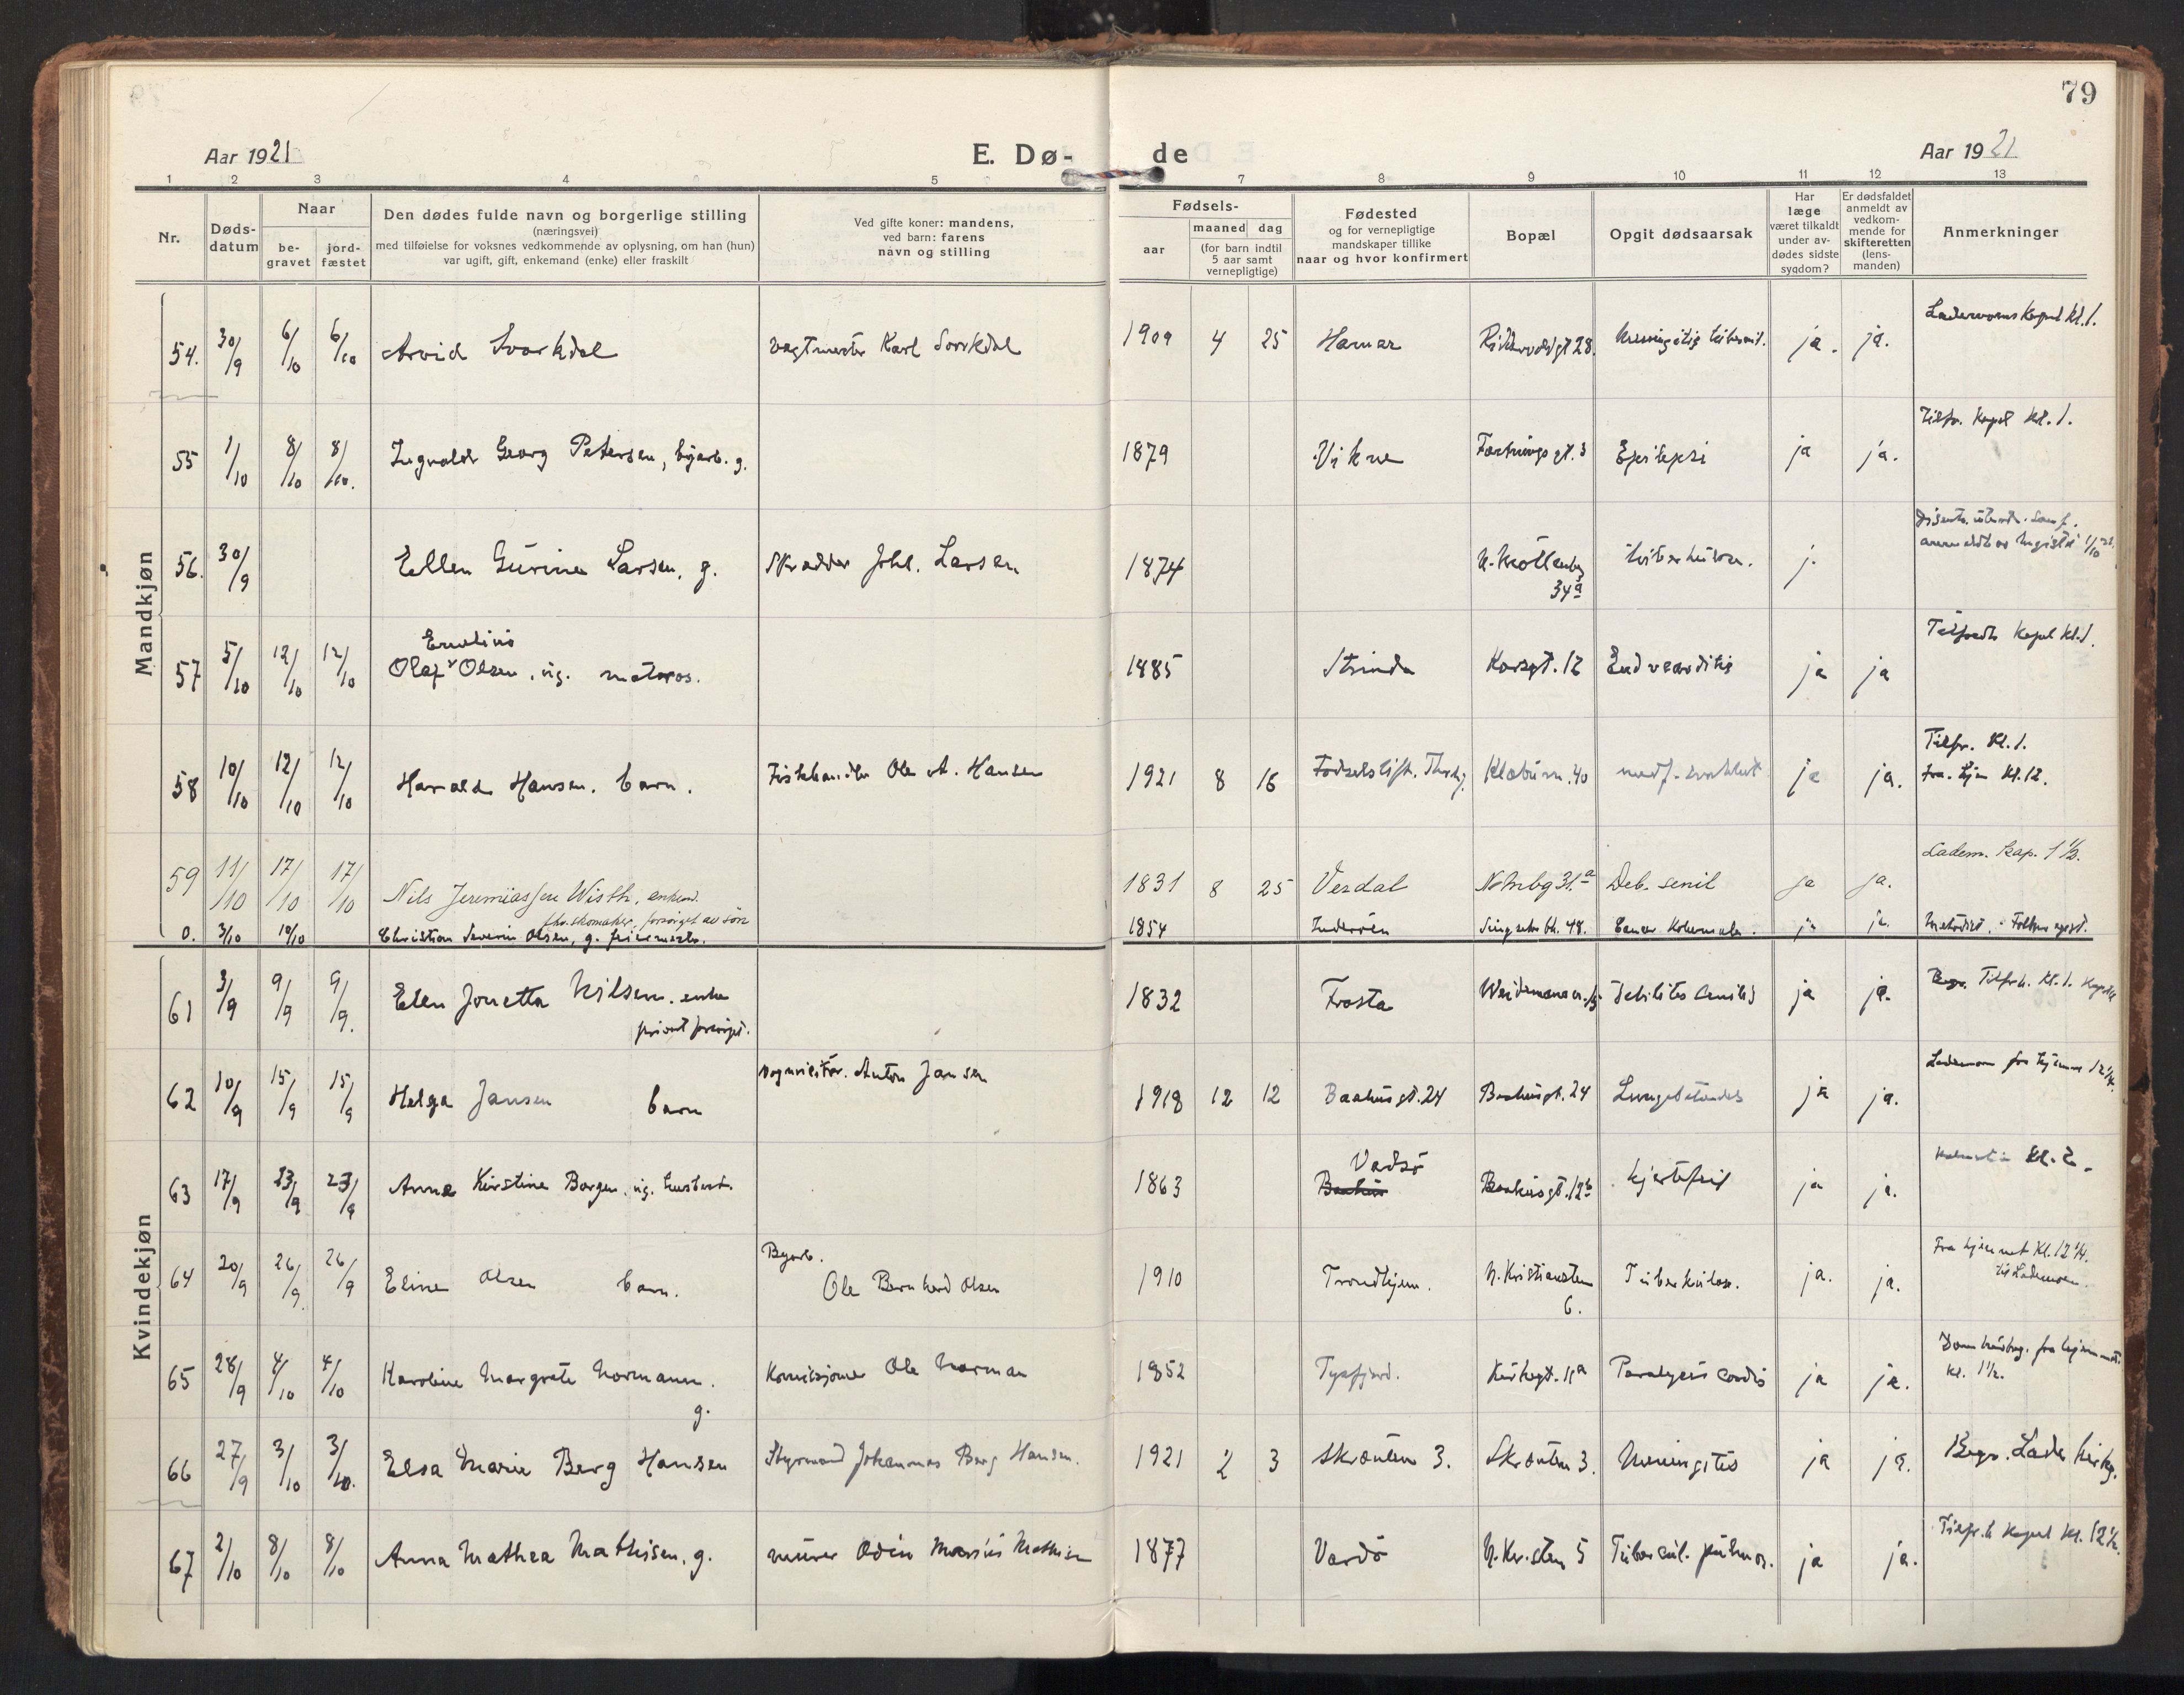 79
Aar 1921
E. Dø-
de
Aar 1921
1 2 3 4 5 7 8 9 10 11 12 13
Nr.
Døds-
datum
Naar
be-
gravet
jord-
fæstet
Den dødes fulde navn og borgerlige stilling
(næringsvei)
med tilføielse for voksnes vedkommende av oplysning, om han (hun)
var ugift, gift, enkemand (enke) eller fraskilt
Ved gifte koner: mandens,
ved barn: farens
navn og stilling
Fødsels-
aar
maaned dag
(for barn indtil
5 aar samt
vernepligtige)
Fødested
og for vernepligtige
mandskaper tillike
naar og hvor konfirmert
Bopæl
Opgit dødsaarsak
Har
læge
været tilkaldt
under av-
dødes sidste
sygdom?
Er dødsfaldet
anmeldt av
vedkom-
mende for
skifteretten
(lens-
manden)
Anmerkninger
Mandkjøn
54. 30/9 6/10 6/10 Arvid Svarkdal Vagtmester Karl 1909 4 25 Hamar ja. ja. Kl. 1.
55 1/10 8/10 8/10. Ingvald Georg Petersen, byarb. g. 1879 Vikne Epilepsi ja ja. Kapel Kl. 1.
56. 30/9 Ellen Gurine Larsen, g. Skrædder Johs. Larsen 1874 N. Møllenbg
34a j.
Emelius
57 5/10 12/10 12/10 Olaf Olsen, ug. matros. 1885 Strinda Korsgt. 12 ja ja Kapel Kl. 1.
58 10/10 12/10 12/10 Harald Hansen. barn. Fiskehandler Ole A. Hansen 1921 8 16 Fødselsstift. Thrhj. Klæbuv. 40 ja ja. Tilfr. Kl. 1.
fra hjem Kl. 12.
59 11/10 17/10 17/10 Nils Jeremiassen Wisth, enkem.
fhv. skomaker, forsørget av søn 1831 8 25 Verdal N. Mlbg 31a Deb. senil ja ja. Ladem. kap. 1 1/2.
0. 3/10 10/10 Christian Severin Olsen, g. 1854 Inderøen 48. Cancer ja ja. Metodist.
Kvindekjøn
61 3/9 9/9 9/9. Elen Jonetta Nilsen. enke
privat forsørget. 1832 Frosta Debilitas senilis ja ja. Begr. Tilfr.h. Kl. 1. Kapellet
62 10/9 15/9 15/9 Helga Jansen barn Anton Jansen 1918 12 12 Baahusgt. 24 Baahusgt. 24 Lungebetændels ja ja. fra hjemmet 12 1/4.
63 17/9 23/9 23/9 Anna Kirstine Borgen, ug. 1863 Vadsø
Baahus Baahusgt. 12b hjertefeil ja ja. Kl. 2.
64 20/9 26/9. 26/9 Eline Olsen barn. Byarb.
Ole Bernhard Olsen 1910 Trondhjem. N. Kristiansten
6. Tuberkulose. ja. ja. Fra hjemmet Kl. 12 1/4.
til Lademoen.
65 28/9 4/10 4/10 Karoline Margrete Normann.
g. Ole Norman 1852 Tysfjord. Kirkegt. Paralysis cordis ja ja. fra hjemmet
Kl. 1 1/2.
66 27/9 3/10 3/10. Elsa Marie Berg Hansen Styrmand Johannes Berg Hansen. 1921 2 3 Skrænten 3. Skrænten 3. Meningitis ja ja. Begr. Lade kirkeg.
67 2/10 8/10 8/10 Anna Mathea Mathisen, g. murer Odin Marius Mathisen 1877 Vardø N. Kr.sten 5 Tubercul. pulmon. ja ja. Kapel Kl. 12 1/2.